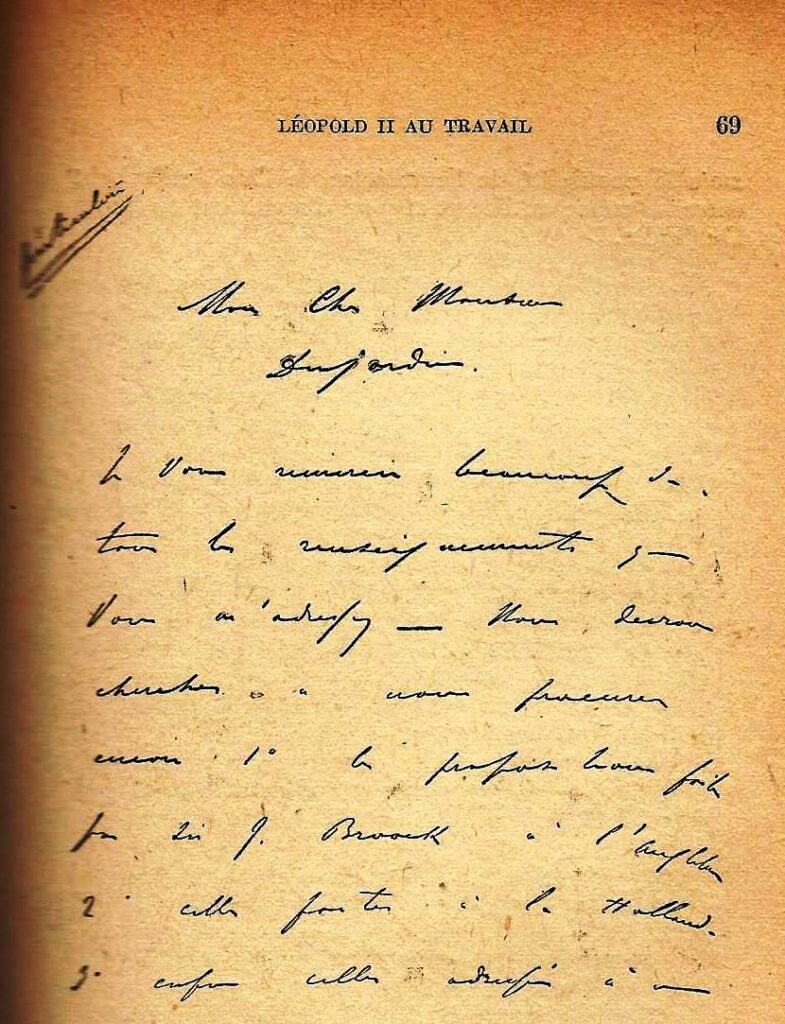 LÉOPOLD II AU TRAVAIL 69
Particulière
Mon Cher Monsieur
Desjardin.
Je Vous remercie beaucoup de
tous les renseignements que
Vous m'adressez — Nous devrons
chercher à nous procurer
encore 1° les propositions faites
par Sir J. Broock à l'Angleterre
2° celles faites à la Hollande
3° enfin celles adressées à